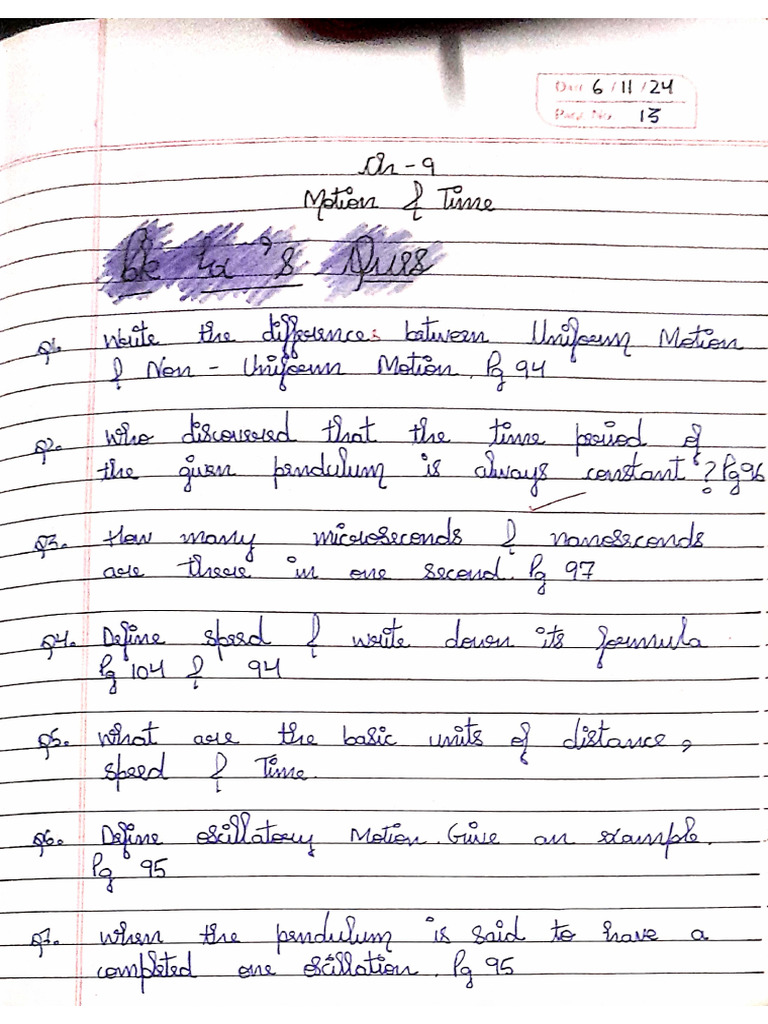 Date 6/11/24
Page No. 13
Ch-9
Motion & Time
Q1. Write the differences between Uniform Motion
& Non-Uniform Motion. Pg 94
Q2. Who discovered that the time period of
the given pendulum is always constant? Pg96
Q3. How many microseconds & nanoseconds
are there in one second. Pg 97
Q4. Define speed & write down its formula
Pg 104 & 94
Q5. What are the basic units of distance,
speed & Time.
Q6. Define oscillatory Motion. Give an example.
Pg 95
Q7. When the pendulum is said to have a
completed one oscillation. Pg 95